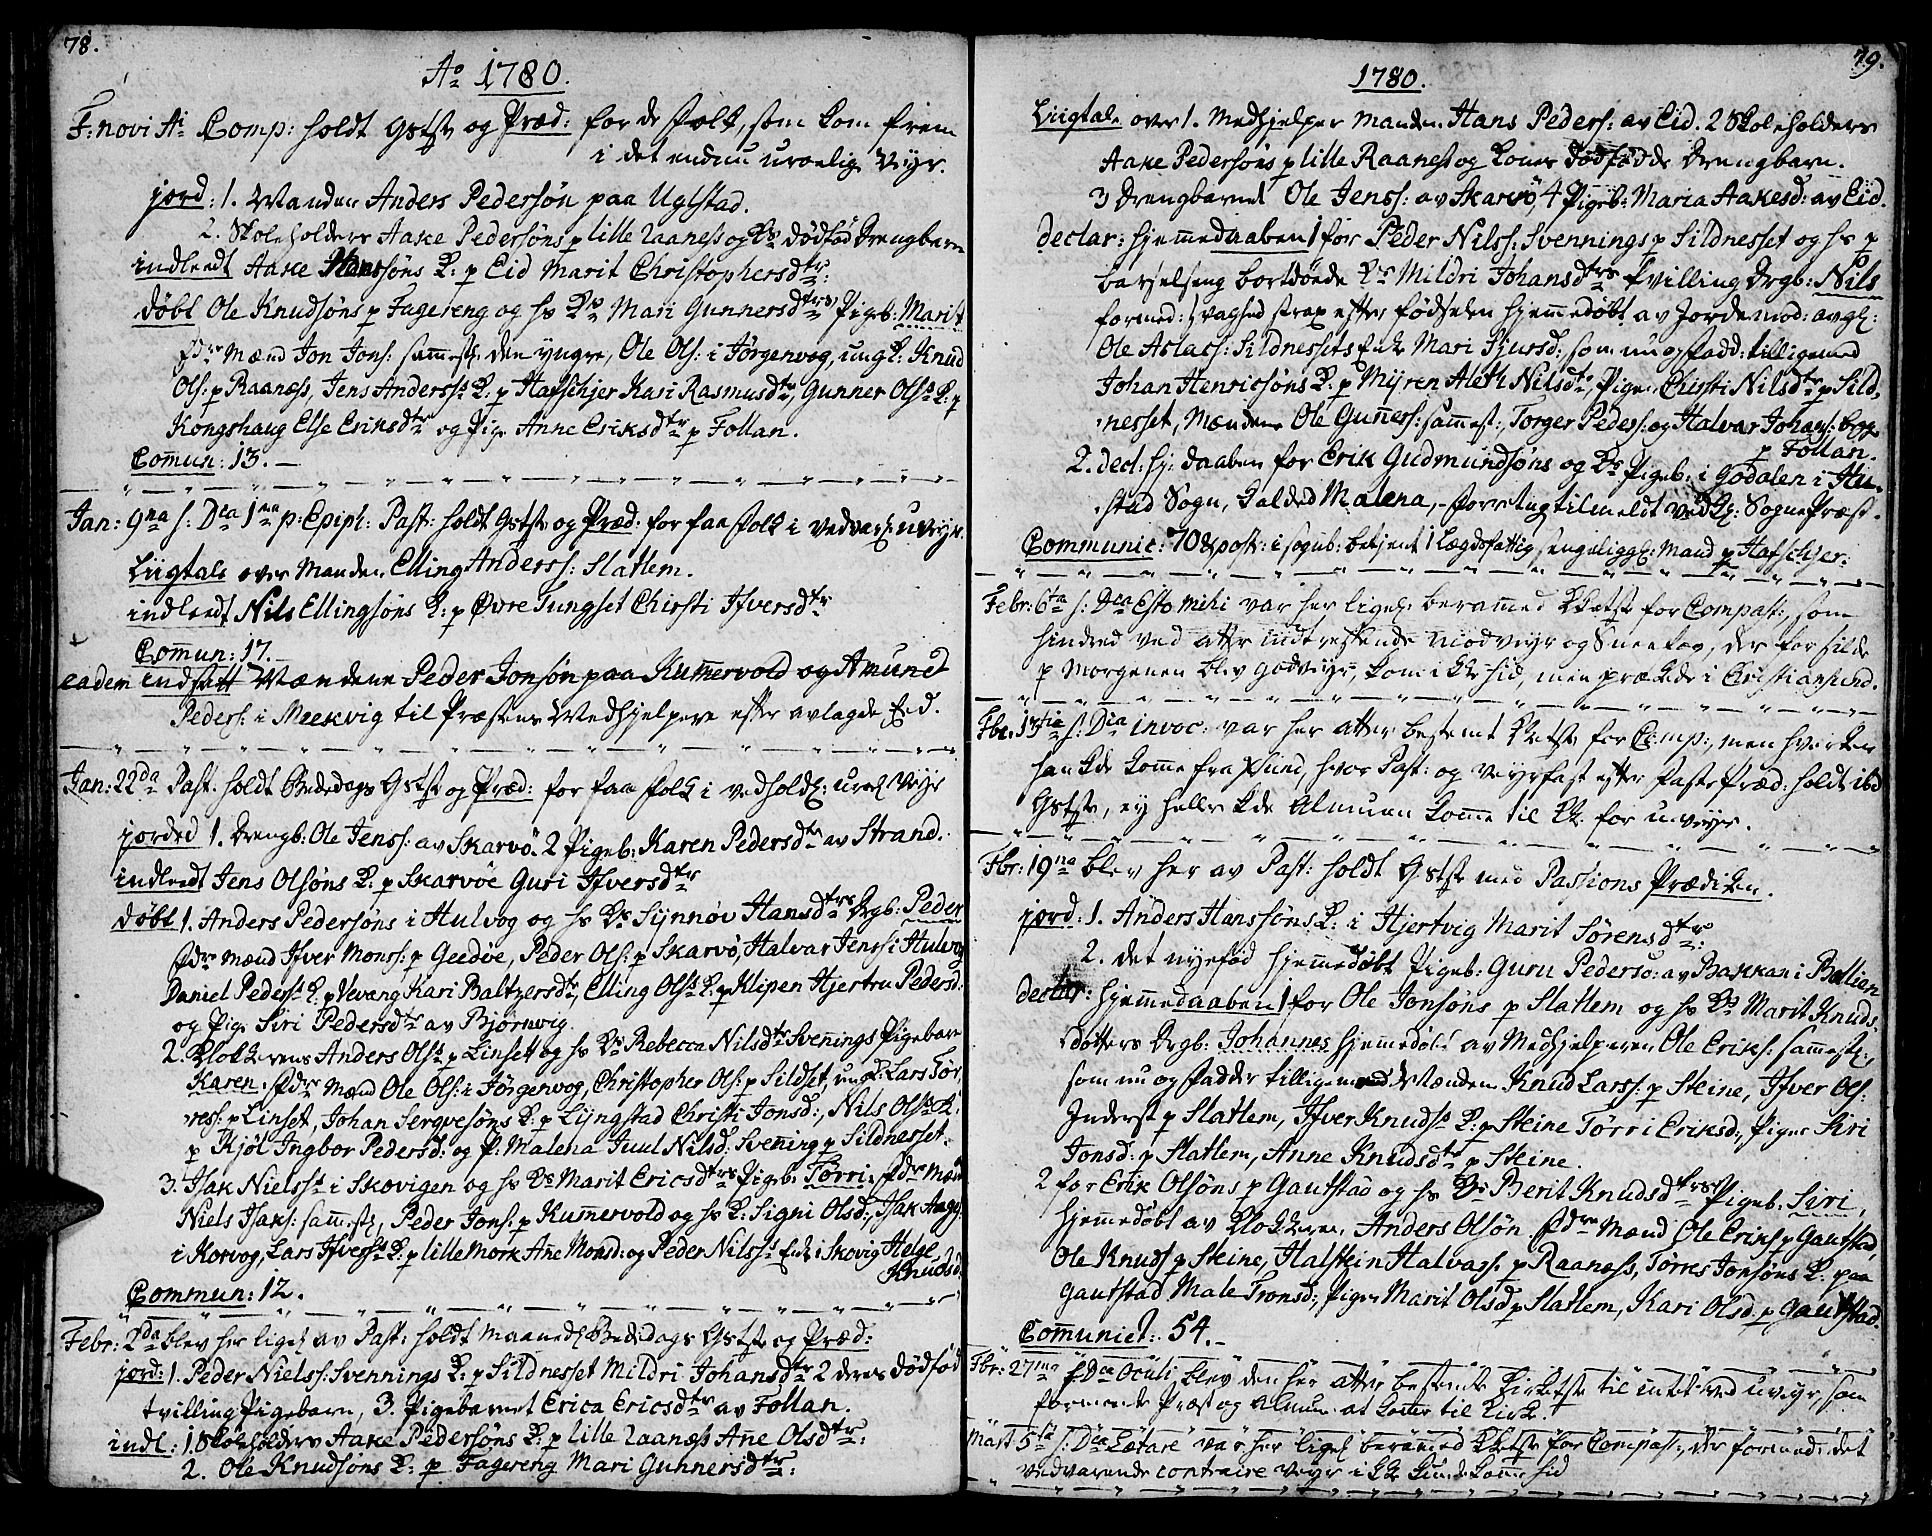 78.
Ao 1780.
F: novi Ai Comp: holdt Gstst og Præd: for de folk, som kom frem
i det endnu uroelig Veyr.
jord: 1. Manden Anders Pedersøn paa Uglstad.
2. Skoleholders Aake Pedersøns p lille Raaness og Ks dødfød Drengbarn
indleedt Aake Hanssøns K: p Eid Marit Christophersdtr:
døbt Ole Knudsøns p Fagereng og hs Ks Mari Gunnersdtrs Pigeb: Marit
fdre Mænd Jon Jons: sammest: den yngre, Ole Ols: i Jørgenvog, ungk: Knud
Ols: p Raanæss, Jens Anderss K: p Hafschjer Kari Rasmusdtr, Gunner Olss K: p
Kongshaug Else Eriksdtr og Pige Anne Eriksdtr p Follan.
Com̄un: 13.
Jan: 9na s: Dca 1ma p: Epiph: Past: holdt Gstst og Præd: for faa folk i vedvar: uveyr.
Liigtale over Manden Elling Anderss: Slatlem.
indleedt Nils Ellingsøns K: p Øvre Tungset Chirsti Ifversdtr
Com̄un: 17.
eadem indsatt Mændene Peder Jonsøn paa Kum̄ervold og Amund
Peders: i Meekvig til Præstens Medhjelpere efter avlagde Eed.
Jan: 22da Past: holdt Bededags Gstst og Præd: for faa folk i vedhold: uroel Veyr
jorded 1. Drengb: Ole Jenss: av Skarvö. 2 Pigeb: Karen Pedersdtr av Strand.
indleedt Jens Olsøns K: p Skarvöe Guri Ifversdtr
døbt 1. Anders Pedersøns i Hulvog og hs Ks Synnöv Hansdtrs Drgb: Peder
fdre Mænd Ifver Monss: p Geedöe, Peder Ols: p Skarvö, Halvar Jenss i Hulvog
Daniel Pederss K: p Vevang Kari Baltzersdtr, Elling Olss K: p Klipen Hjertru Pedersd:
og Pige Siri Pedersdtr av Bjørnvig.
2. Klokkerens Anders Olss p Linset og hs Ks Rebecca Nilsdtr Svenings Pigebarn
Karen. fdre Mænd Ole Ols: i Jørgenvog, Christopher Ols: p Sildset, ungk: Lars Tør,
ress: p Linset, Johan Sergvesøns K: p Lyngstad Chirsti Jonsd:, Nils Olss K:
p Kjøl Ingbor Pedersd: og P: Malena Juul Nilsd: Svening p Sildnesset.
3. Isak Nielss i Skovigen og hs Ks Marit Ericsdtrs Pigeb: Tørri. fdre Mænd
Niels Isaks: sam̄est:, Peder Jons: p Kum̄ervold og hs K: Signi Olsd:, Isak
i Korvog, Lars Ifverss K: p lille Mork Ane Monsd: og Peder Nilss Enk i Skovig Helge
Knudsd.
Com̄un: 12.
Febr: 2da blev her ligel av Past: holdt maanedl Bededags Gstst og Præd:
jord: 1. Peder Nielss: Svennings K: p Sildnesset Mildri Johansdtr 2 deres dødfød
tvilling Pigebarn, 3. Pigebarnet Erica Ericsdtr av Follan.
indl: 1. Skoleholders Aake Pedersøns K: p lille Raanæss Ane Olsdtr:
2. Ole Knudsøns K: p Fagereng Mari Gunnersdtr:
79.
1780.
Liigtale over 1. Medhjelper Manden Hans Peders: av Eid. 2 Skoleholders
Aake Pedersøns p lille Raaness og Kones dødfødde Drengbarn.
3 Drengbarnet Ole Jenss: av Skarvö, 4 Pigeb: Maria Aakesd: av Eid.
declar: hjem̄edaaben 1 for Peder Nilss: Svennings p Sildnesset og hs p
barselseng bortdøede Ks Mildri Johansdtrs tvilling Drgb: Nils
formed: svaghed strax efter fødselen hjem̄edøbt av Jordemod: avgl:
Ole Aslacs: Sildnessets Enk Mari Sjursd: som nu og fadd: tilligemed
Johan Henricsøns K: p Myren Aleth Nilsdtr, Pigen Chirsti Nilsdtr p Sild,
nesset, Mændene Ole Gunners: sam̄est:, Torger Peders: og Halvar Johans: begge
p Follan.
2. decl: hj: daaben for Erik Gudmundsøns og Ks Pigeb: i Godalen i Hu,
stad Sogn, kalded Malena, forretug tilmeldt ved Kl: Sogne Præst.
Communic: 70 & post: i sogneb: betjent 1 Lægdsfattig sengeliggl: Mand p Hafschjer:
Febr: 6ta s: Dca Esto mihi var her ligel: beram̄ed Kketst for Com past:, som
hindred ved atter indtreffende modveyr og Sneefog, der for silde
p Morgenen blev godveyr, kom i Kk-tid, men prækede i Christiansund.
Fbr: 13tia s: Dca invoc: var her atter bestemt Kketst for Comp:, men hverken
han kde kom̄e fra Xsund, hvor Past: og veyrfast efter Paste Præd: holdt ibd
Gstst, ey heller kde Almuen kom̄e til Kk for uveyr.
Fbr: 19na blev her av Past: holdt Gstst med Passions Prædiken.
jord: 1. Anders Hanssøns K: i Hjertvig Marit Sørensdtr:
2. det nyefød hjem̄edøbt Pigeb: Guru Pedersd: av Bakkan i Bollien
declar: hjem̄edaaben 1 for Ole Jonsøns p Slatlem og hs Ks Marit Knuds,
døtters Drgb: Johannes hjem̄edøbt av Medhjelperen Ole Eriks: sam̄est:,
som nu og fadder tilligemed Mændene Knud Larss: p Steine, Ifver Ols:
Inderst p Slatlem, Ifver Knudss K: p Steine Tørri Eriksd:, Piger Siri
Jonsd: p Slatlem, Anne Knudsdtr p Steine.
2 for Erik Olsøns p Gautstad og hs Ks Berit Knudsdtrs Pigeb: Siri,
hjem̄edøbt av Klokkeren Anders Olsøn fdre Mænd Ole Eriks p Gautstad,
Ole Knuds p Steine, Halstein Halvars: p Raanæss, Tørres Jonsøns K: paa
Gautstad Male Tronsd:, Piger Marit Olsd p Slatlem, Kari Olsd: p Gautstad.
Com̄unict: 54.
Fbr: 27ma s Dca Oculi, blev den her atter bestemte Kirketst til intet ved uveyr, som
formente Præst og Almue at kom̄e til Kirk.
Mart 5ta s: Dca Lætare var her ligel beram̄ed Kketst for Compast:, der formed: det
vedvarende contraire veyr i Kk kunde kom̄e hid